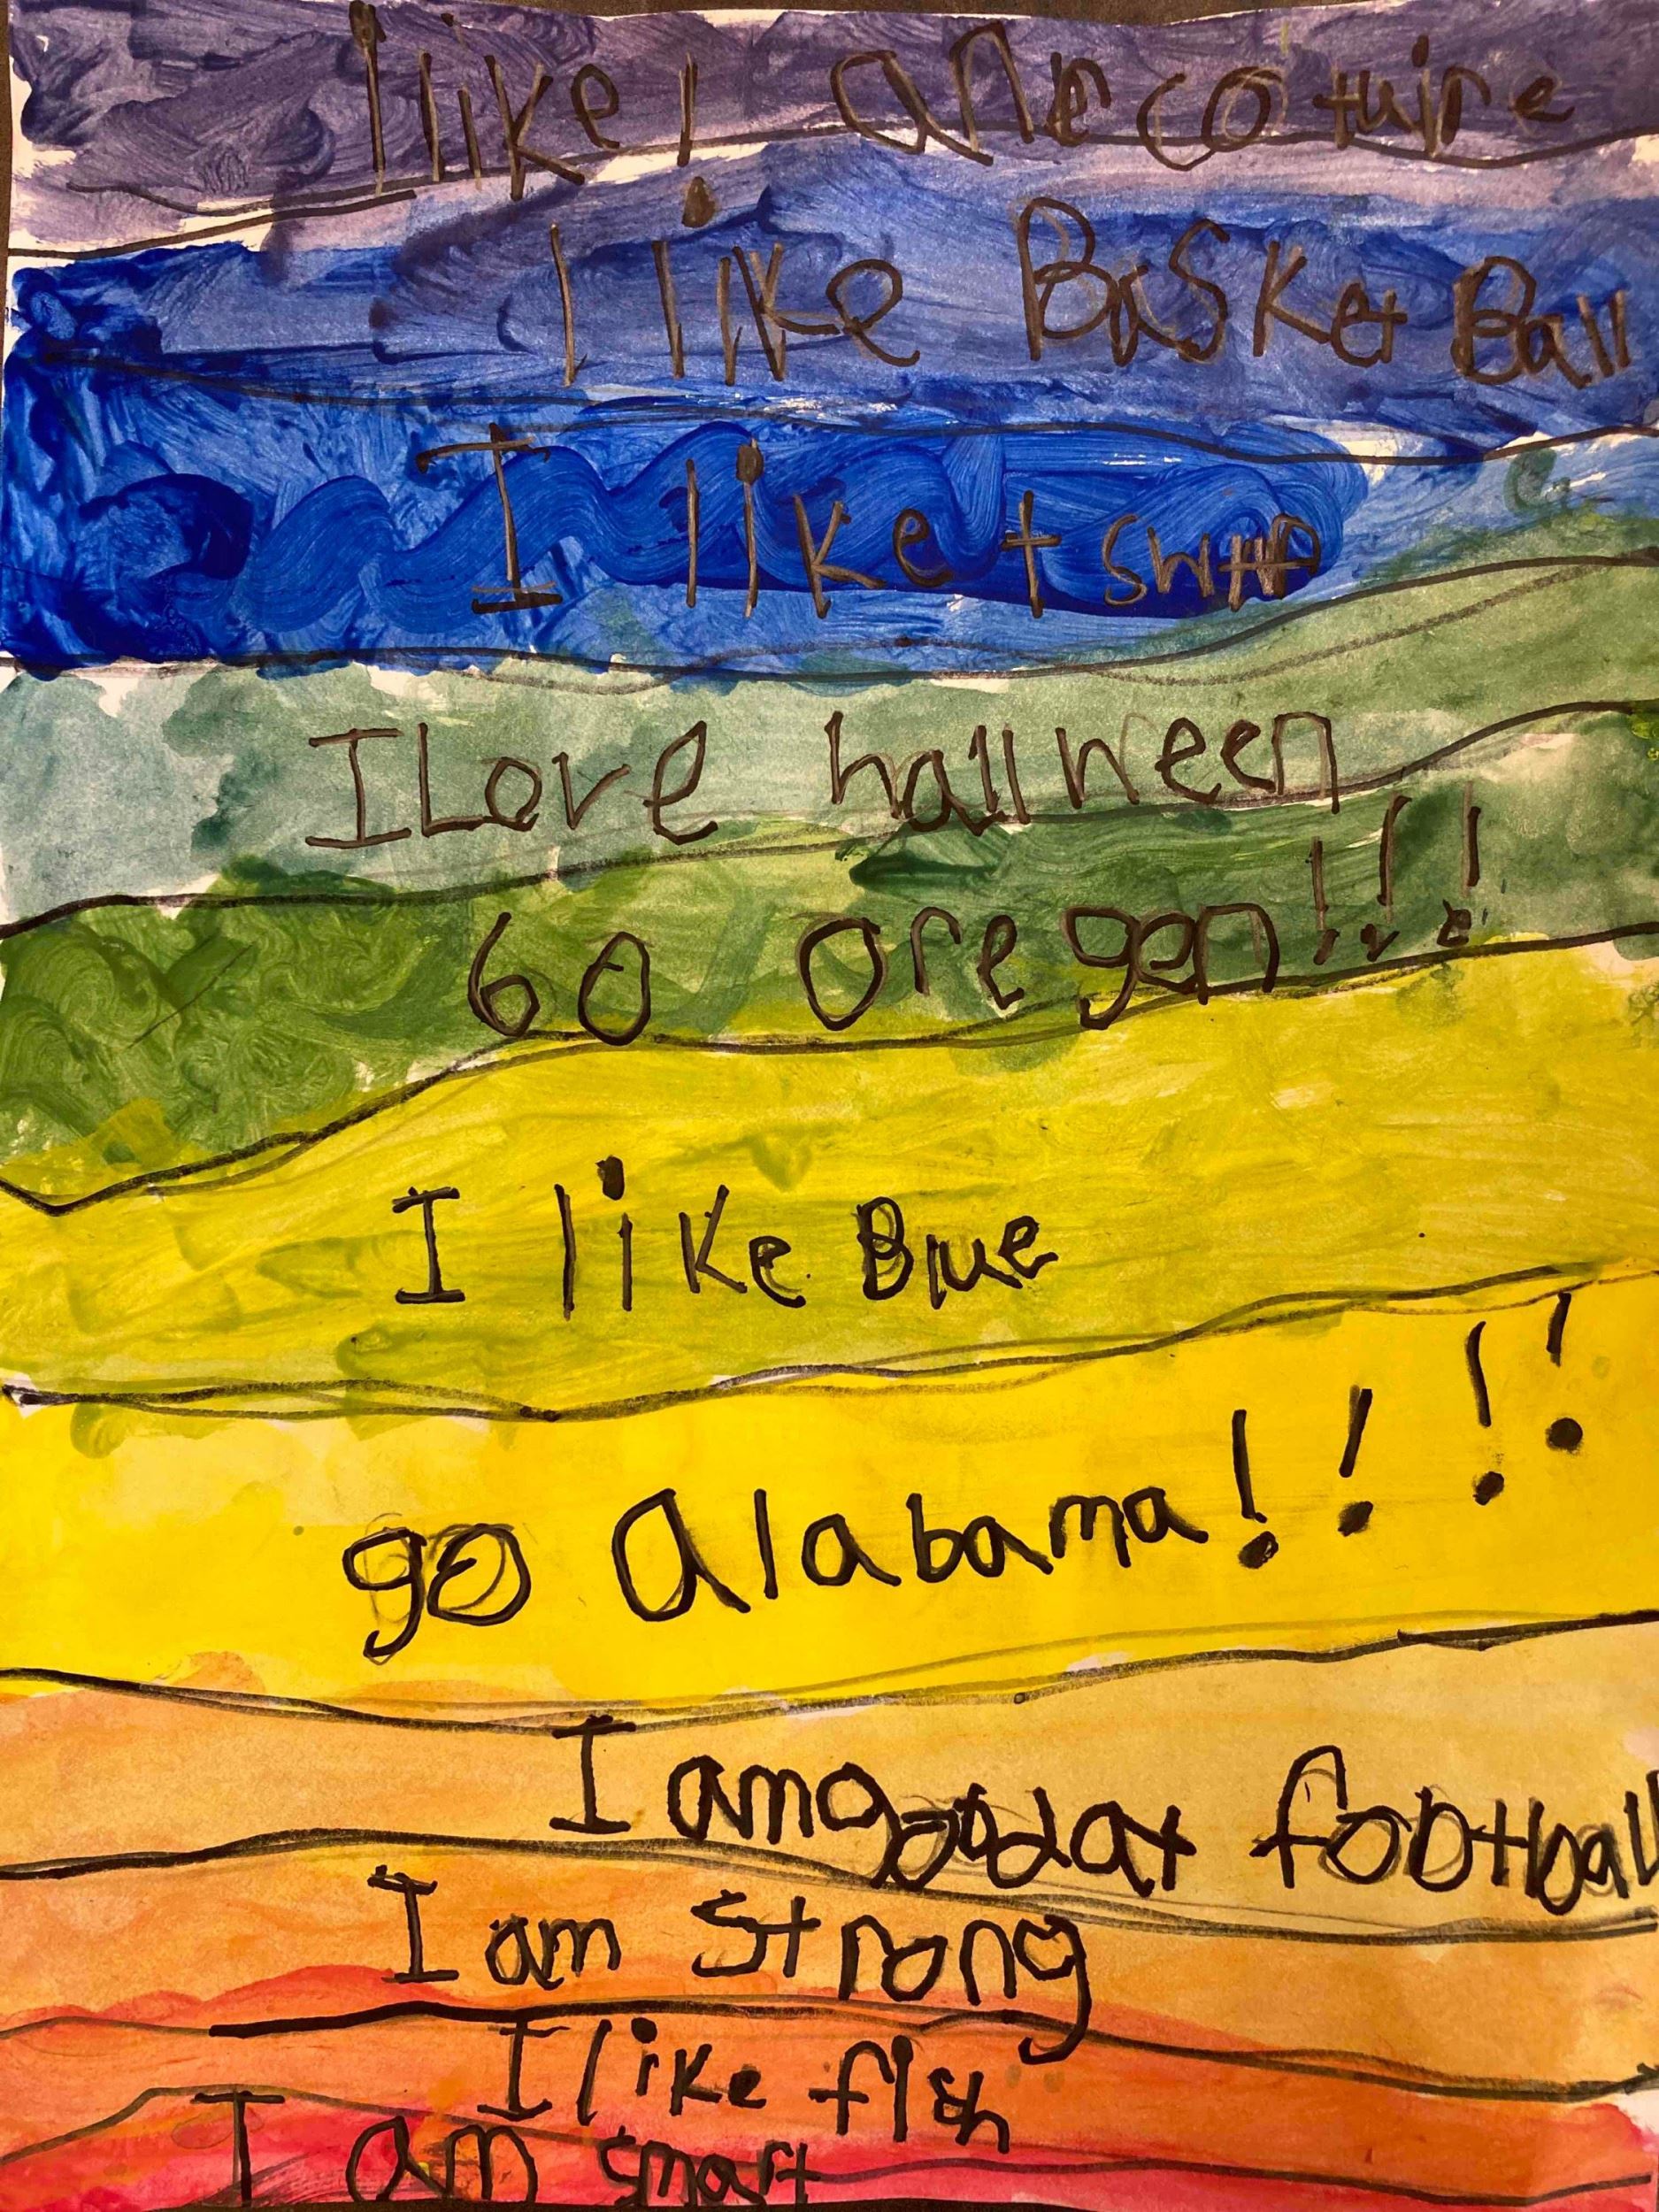 I like
I like BasKet Ball
I like t swim
I Love hallween
GO Oregon!!!
I like Blue
go Alabama!!!!
I am good at football
I am strong
I like fish
I am smart